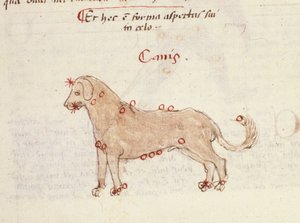 Et hec ē forma aspectus sui
in celo
Canis